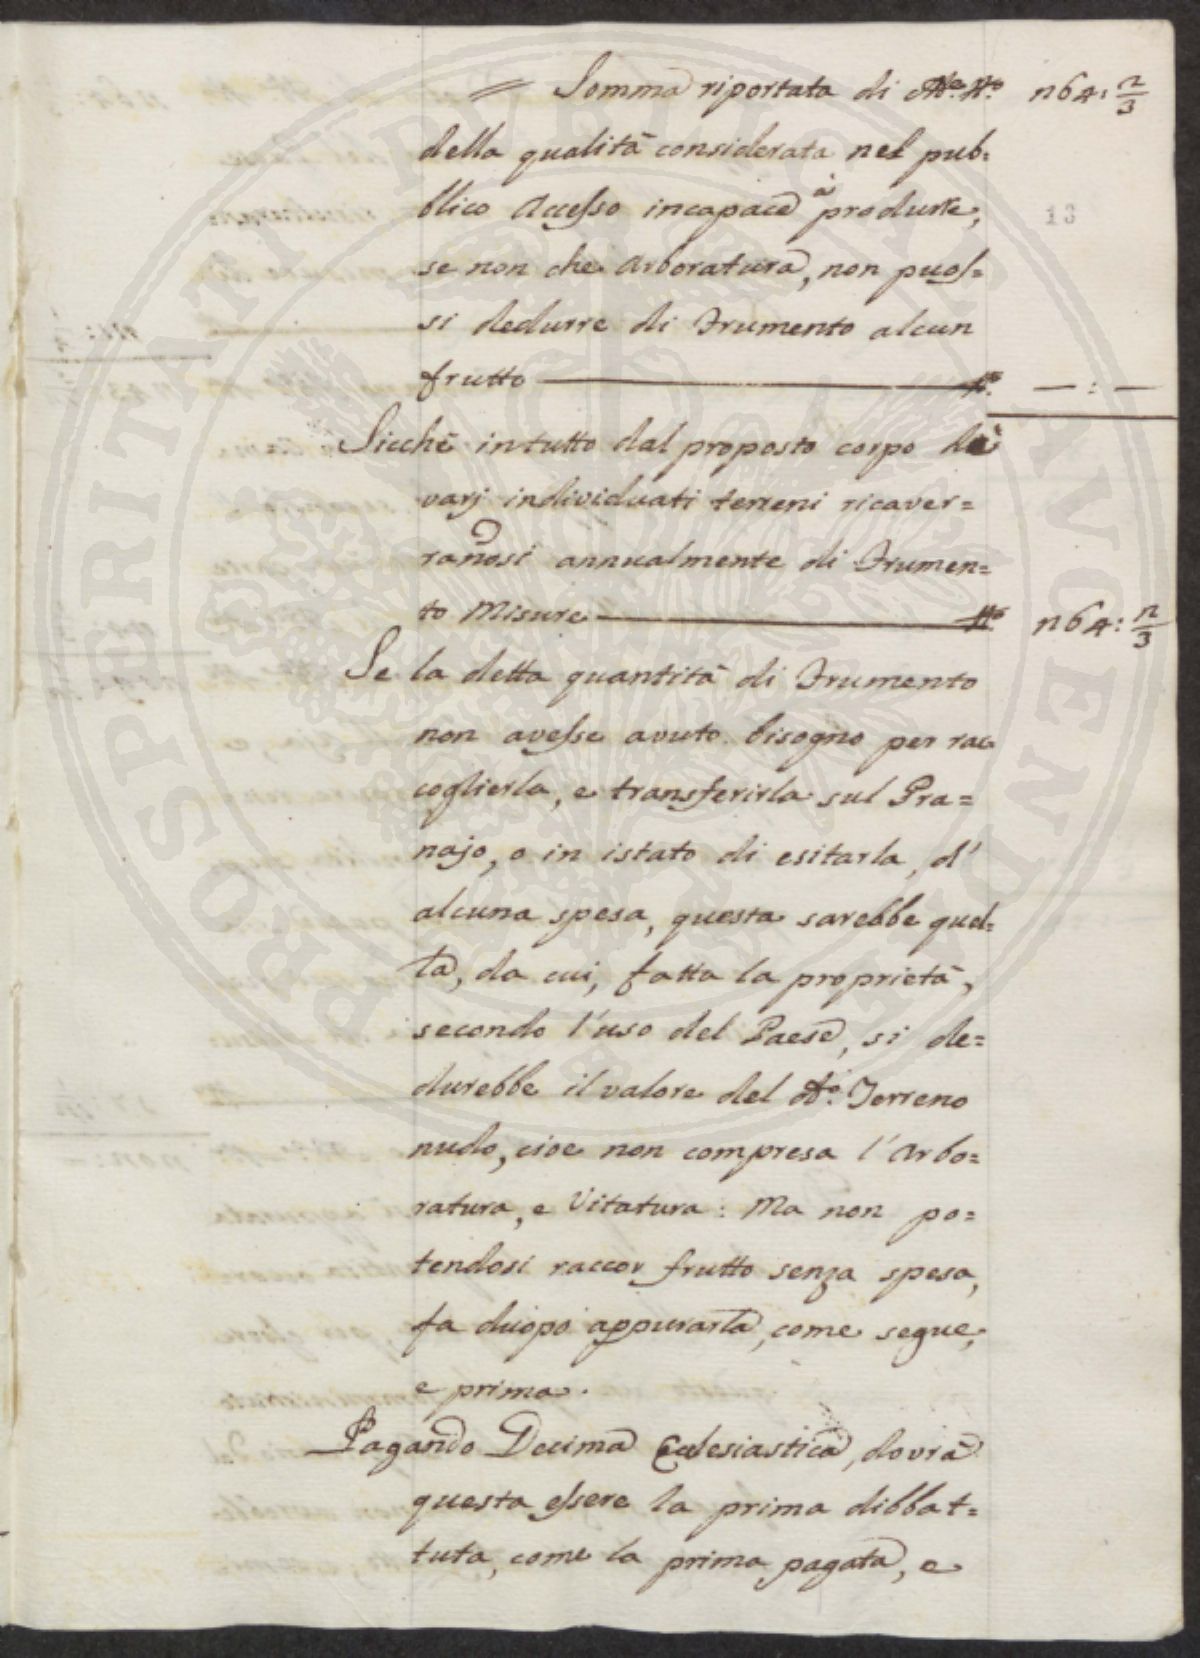 = Somma riportata di N.o n64: 2/3
della qualità considerata nel pub=
blico Accesso incapace à produrre, 13
se non che Arboratura, non puos=
si dedurre di Frumento alcun
frutto — : —
Sicchè in tutto dal proposto corpo de
varj individuati terreni ricaver=
rannosi annualmente di Frumen=
to Misure N.o n64: 2/3
Se la detta quantità di Frumento
non avesse avuto bisogno per rac
coglierla, e transferirla sul Gra=
najo, o in istato di esitarla, d'
alcuna spesa, questa sarebbe quel=
la, da cui, fatta la proprietà,
secondo l'uso del Paese, si de=
durebbe il valore del do. Terreno
nudo, cioe non compresa l'Arbo=
ratura, e Vitatura: Ma non po=
tendosi raccor frutto senza spesa,
fa duopo appurarla, come segue,
e prima.
Pagando Decima Eclesiastica, dovrà
questa essere la prima dibbat=
tuta, come la prima pagata, e
PROSPERITATI PUBLICAE AUGENDAE